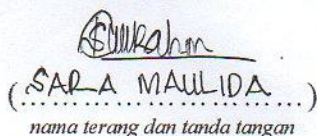 ( SARA MAULIDA )
nama terang dan tanda tangan